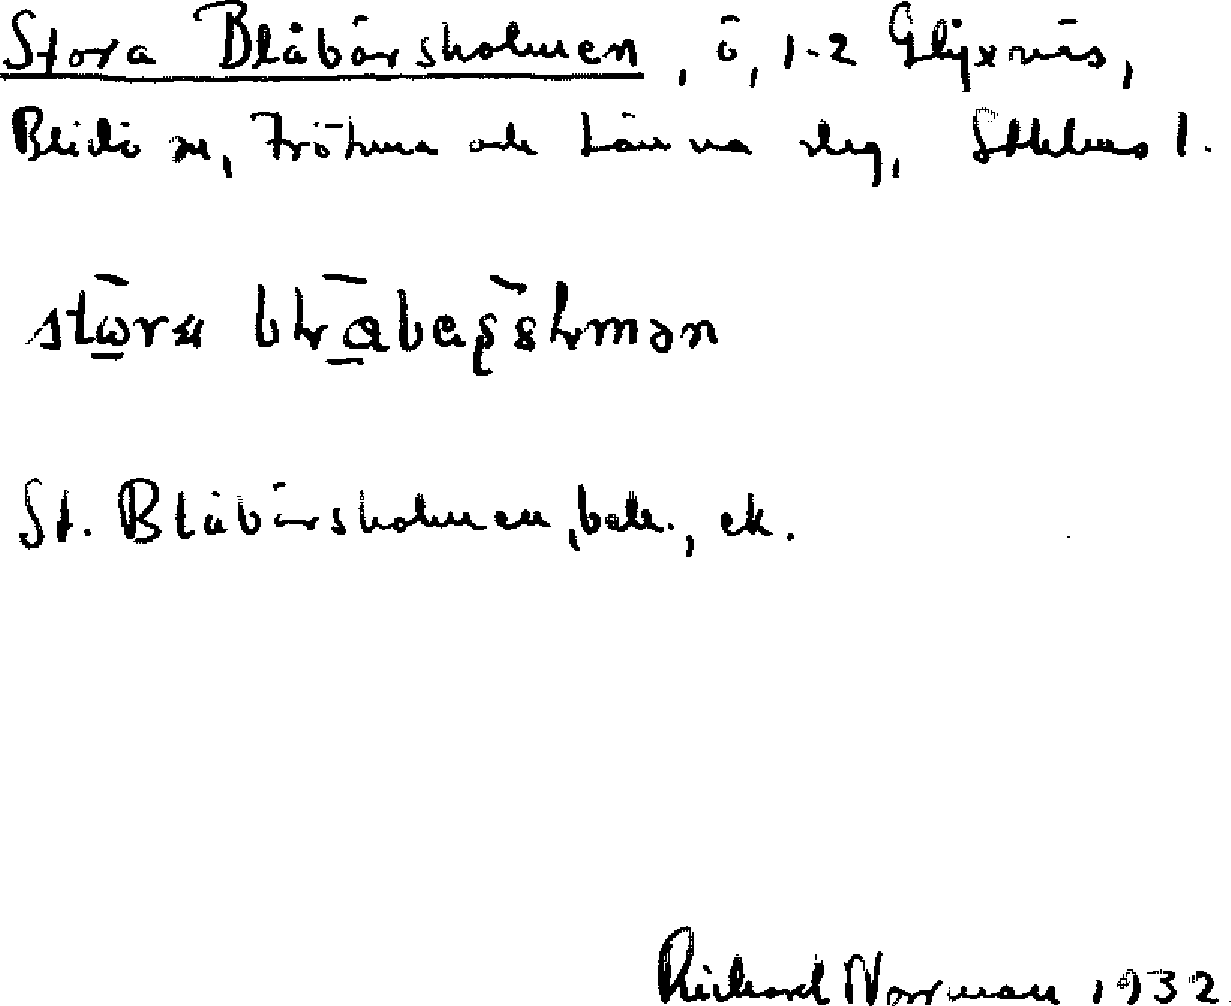 Stora Blåbärsholmen, ö, 1-2 Glyxnäs,
Blidö sn, Frötuna och Länna slg, Sthlms l.
St. Blåbärsholmen, bek., ek.
Richard Norrman 1932